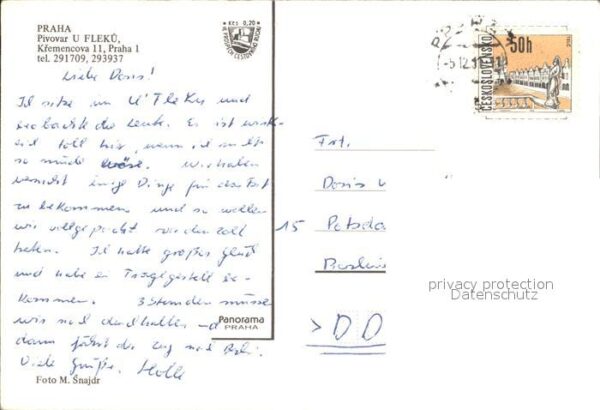 PRAHA
Pivovar U FLEKŮ,
Křemencova 11, Praha 1
tel. 291709, 293937
Kčs 0,20
Liebe Doris!
Ich sitze im U Fleku und
beobachte die Leute. Es ist wirk-
lich toll hier, wenn ich nicht
so müde wäre. Wir haben
versucht einige Dinge für das
zu bekommen und so wollen
wir vollgepackt vor dem Zoll
stehen. Ich hatte großes Glück
und habe ein Tragegestell be-
kommen. 3 Stunden müssen
wir noch durchhalten und
dann fährt der Zug nach
Viele Grüße
Foto M. Šnajdr
Panorama
PRAHA
ČESKOSLOVENSKO
50h
Frl.
Doris
15 Potsda
Berlin
> DD
privacy protection
Datenschutz